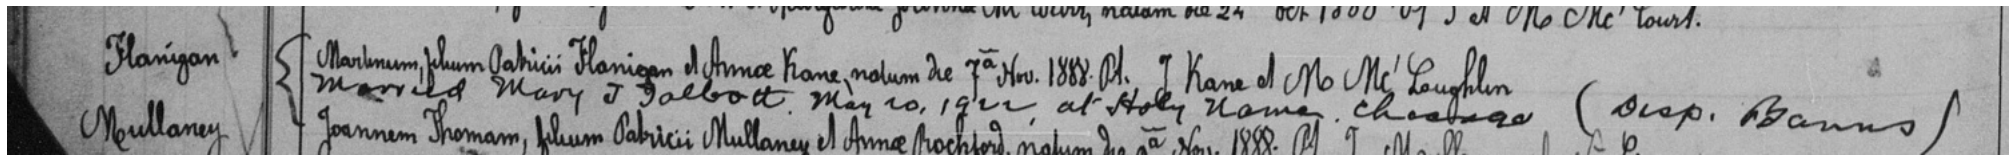 natam die 24 Oct 1888. Pt J et M Mc'Court.
Flanigan { Martinum, filium Patricii Flanigan et Annæ Kane, natum die 7ª Nov. 1888. Pt. J Kane et M Mc'Loughlin
Married Mary J Talbott. May 20, 1922, at Holy Name. Chicago (Disp. Banns)
Mullaney Joannem Thomam, filium Patricii Mullaney et Annæ Rochford, natum die Nov. 1888. Pt J